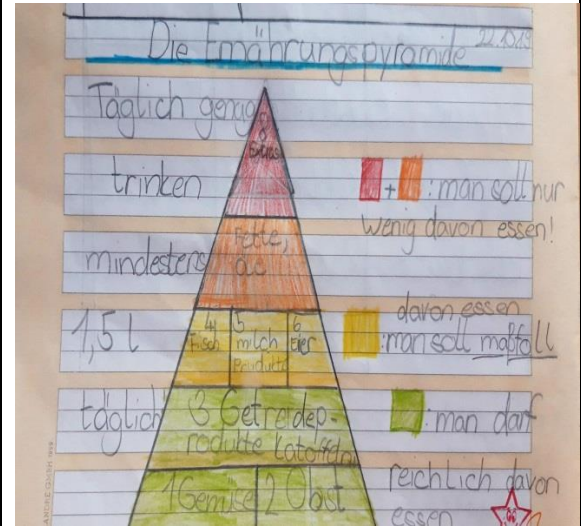 Die Ernährungspyramide
22.10.19
Täglich genug
trinken
mindestens
1,5 l
täglich
8
Süßes
Fette,
Öle
4
Fisch
5
milch
Produkte
6
Eier
3 Getreidep-
rodukte Katoffeln
1 Gemüse
2 Obst
+ : man soll nur
wenig davon essen!
davon essen
: man soll maßfoll
: man darf
reichlich davon
essen